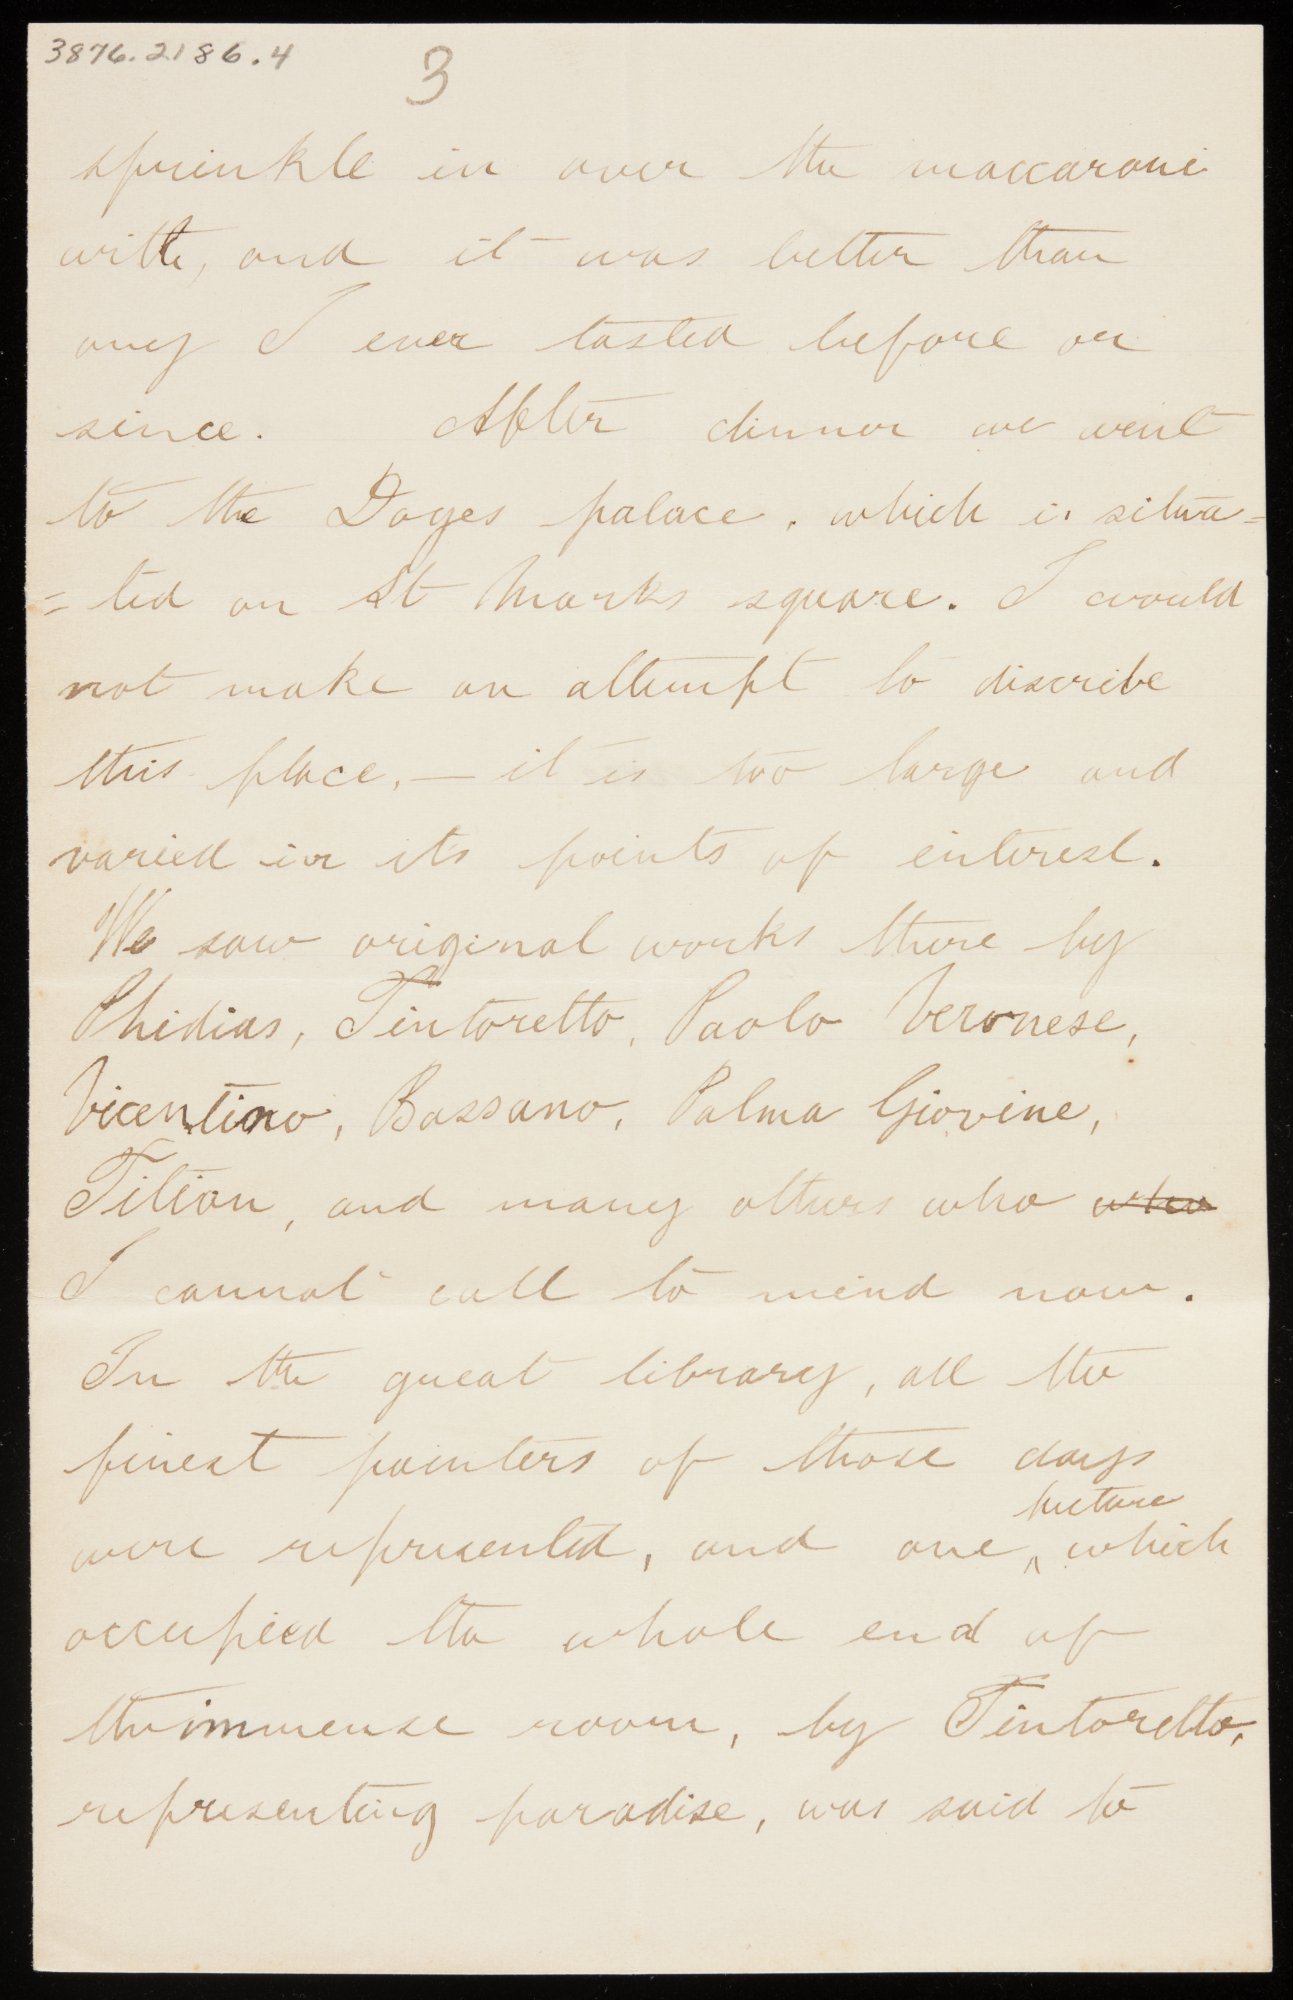 3876.2186.4
3
sprinkle in over the maccaroni
with, and it was better than
any I ever tasted before or
since. After dinner we went
to the Doges palace, which is situa=
=ted on St Marks square. I would
not make an attempt to discribe
this place, — it is too large and
varied in its points of interest.
We saw original works there by
Phidias, Tintoretto, Paolo Veronese,
Vicentino, Bassano, Palma Giovine,
Titian, and many others who who
I cannot call to mind now.
In the great library, all the
finest painters of those days
picture
were represented, and one ^ which
occupied the whole end of
the immense room, by Tintoretto,
representing paradise, was said to